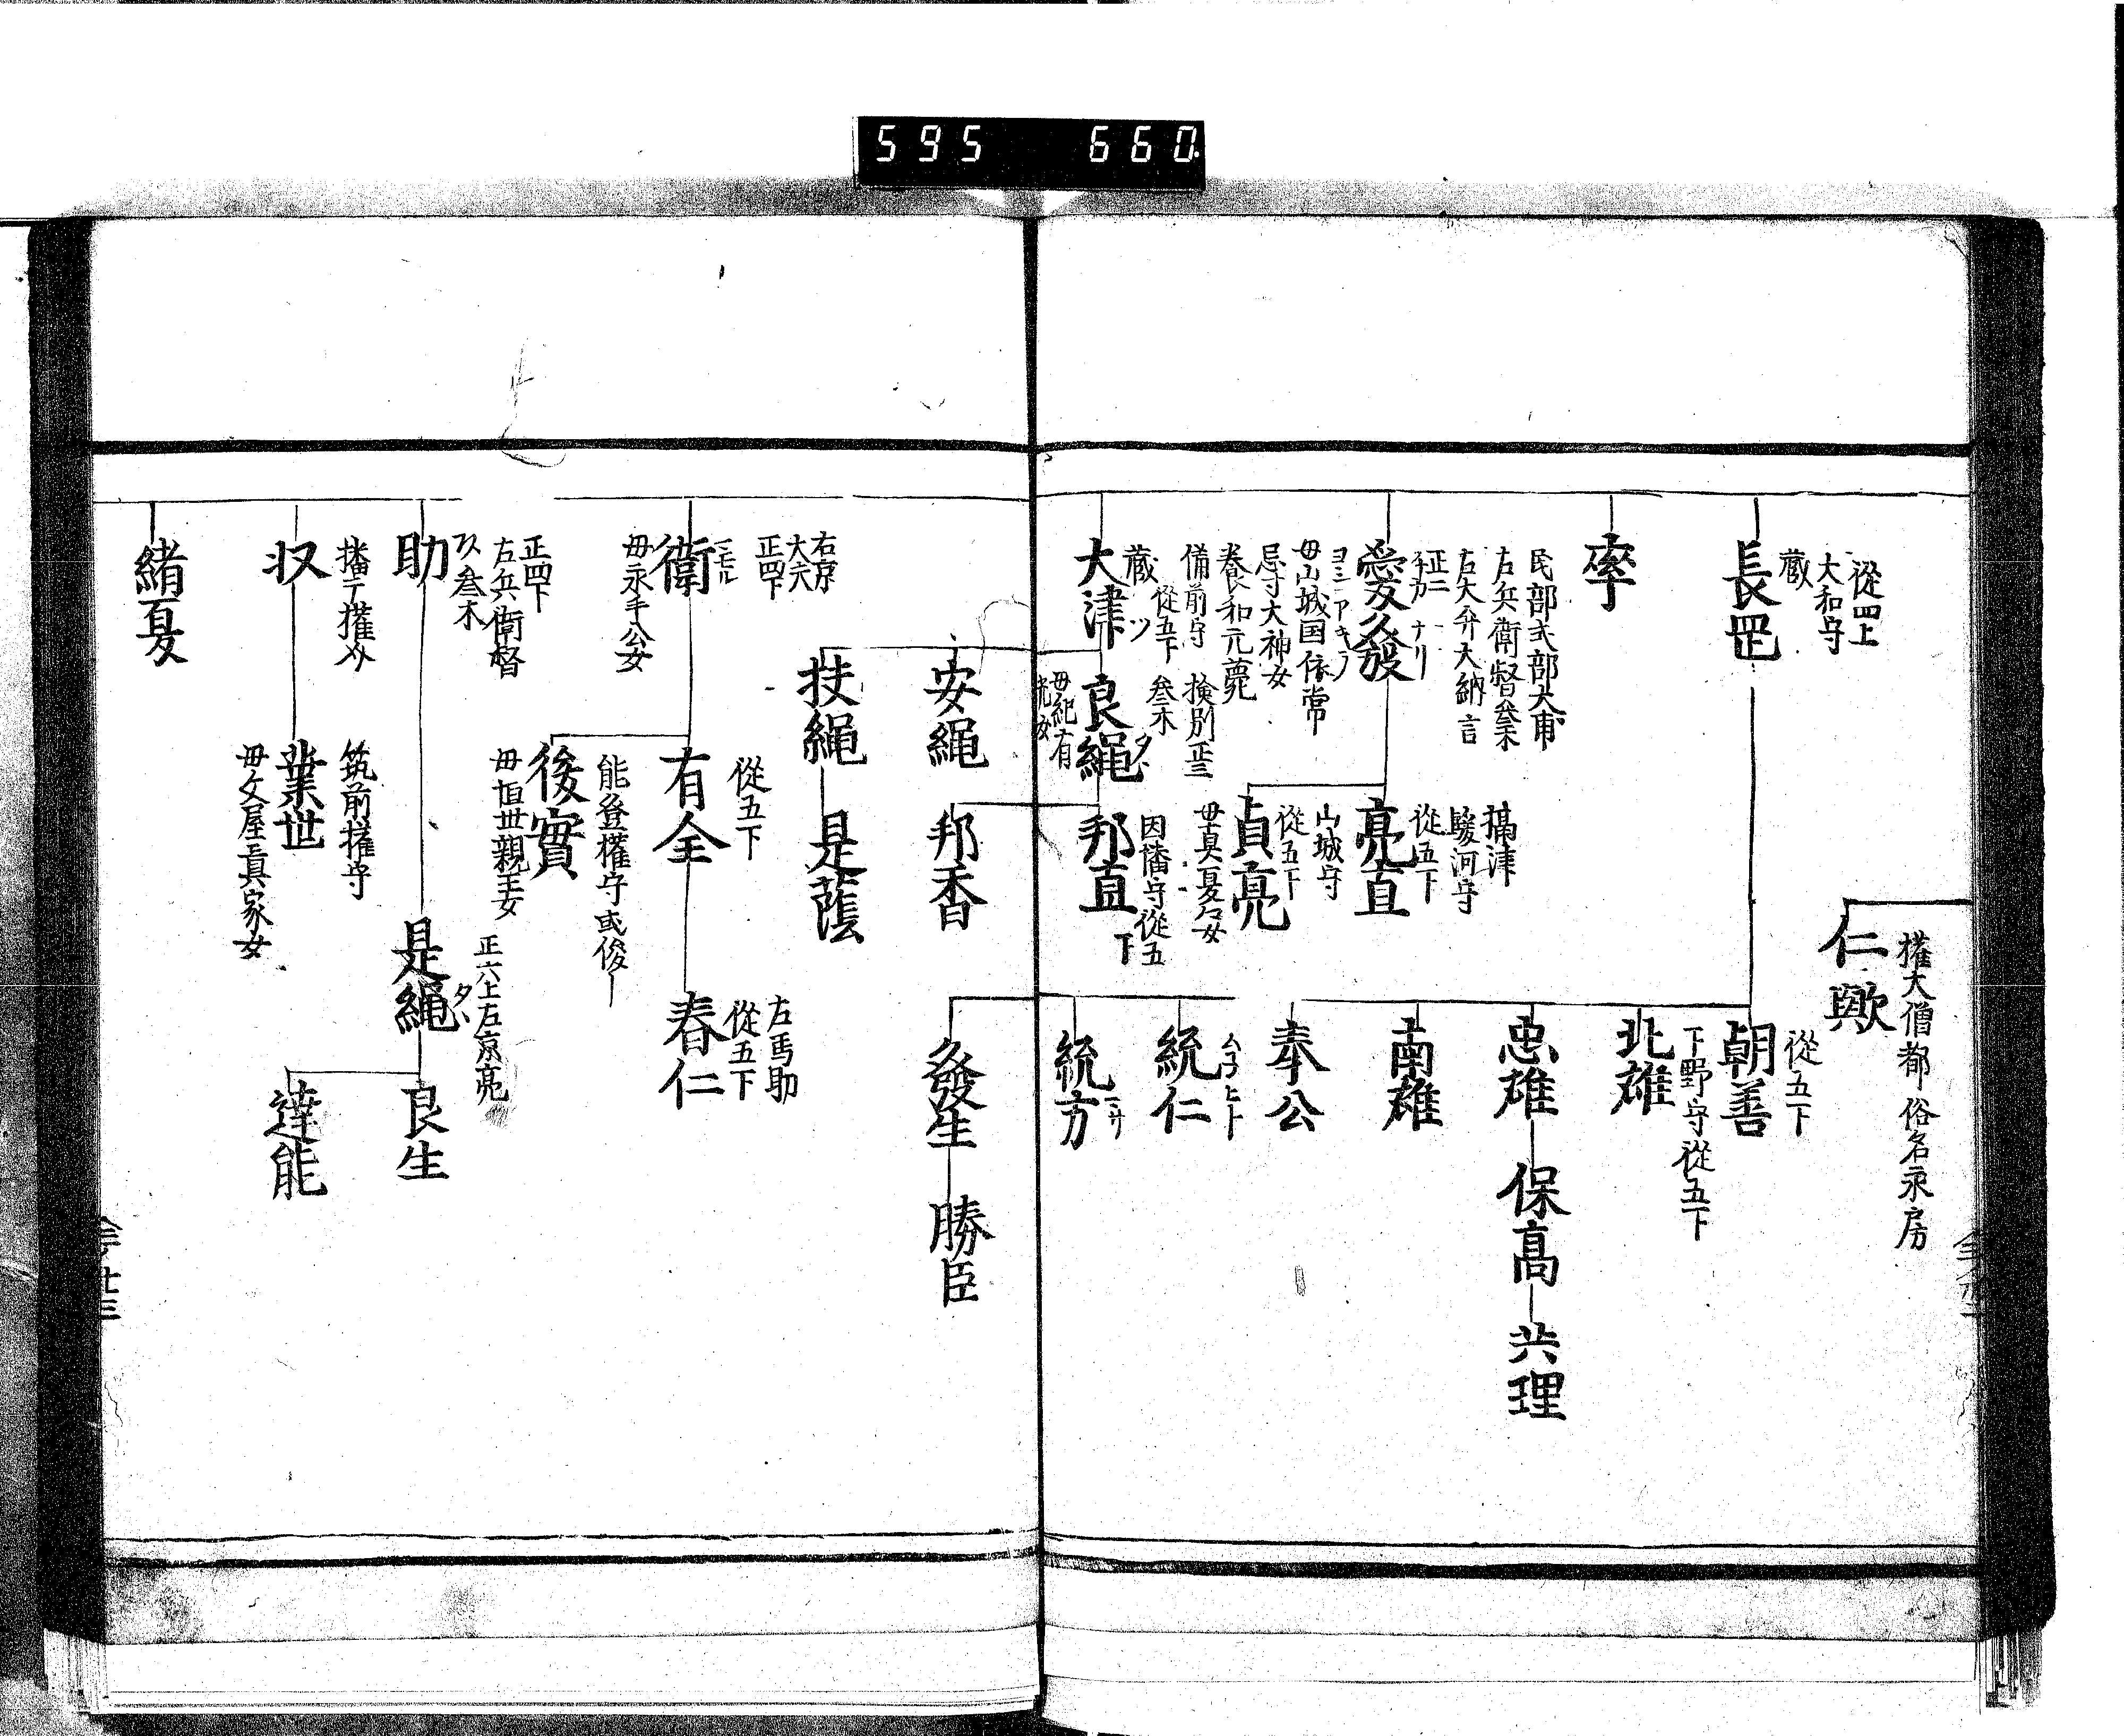 595 660
從四上
大和守
蔵
長岡
權大僧都 俗名永房
仁歟
從五下
朝善
下野守從五下
北雄
忠雄
保高
共理
南雄
奉公
統仁
統方
發生
勝臣
率
民部式部大甫
左兵衛督叅木
右大弁大納言
正二
愛發
ヨシアキラ
毋山城国依常
忌寸大神女
摂津
駿河守
從五下
亮直
山城守
從五下
貞亮
毋真夏女
養和元薨
備前守
從五下
蔵
大津
検別正三
叅木
良縄
毋紀有
因幡守從五下
邦直
邦香
安縄
扶縄
是蔭
右京
大六
正四下
衛
毋永手公女
從五下
有全
左馬助
從五下
春仁
能登權守或俊
後實
毋恒世親王女
正四下
左兵衛督
叅木
助
正六上左京亮
是縄
良生
達能
播广權介
収
筑前權守
業世
毋文屋真家女
緒夏
廿三